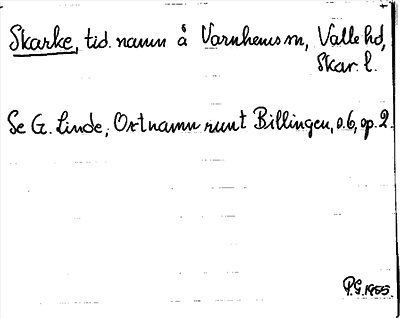 Skarke, tid. namn å Varnhems sn, Valle hd,
Skar. l.
Se G. Linde, Ortnamn runt Billingen, s. 6, sp. 2.
P.G. 1955.